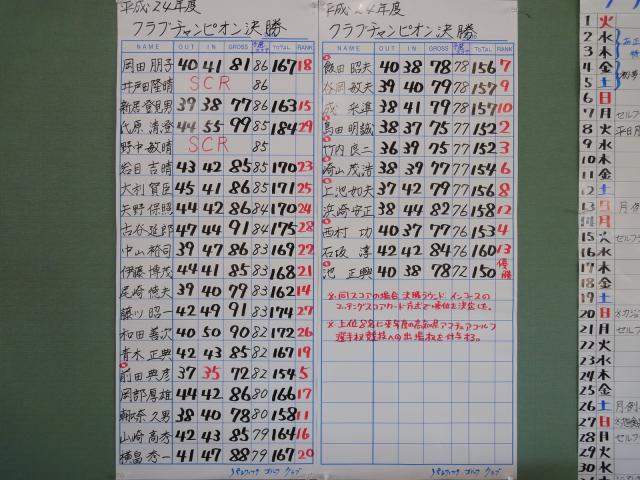 平成24年度
クラブチャンピオン決勝
NAME OUT IN GROSS 予選スコア TOTAL RANK
岡田 朋子 40 41 81 86 167 18
井戸田隆晴 SCR 86
新居登見男 39 38 77 86 163 15
氏原 清澄 44 55 99 85 184 29
野中敏晴 SCR 85
岩目 吉晴 43 42 85 85 170 23
大利賀臣 45 41 86 85 171 25
矢野保照 44 42 86 84 170 24
古谷延郎 47 44 91 84 175 28
中山裕司 39 47 86 83 169 22
伊藤博茂 44 41 85 83 168 21
尾崎倹夫 40 39 79 83 162 14
藤川昭一 42 49 91 83 174 27
和田善次 40 50 90 82 172 26
青木正典 42 43 85 82 167 19
前田典彦 37 35 72 82 154 5
岡部厚雄 44 42 86 80 166 17
朝比奈久男 38 40 78 80 158 11
山崎高秀 42 43 85 79 164 16
横畠秀一 41 47 88 79 167 20
平成24年度
クラブチャンピオン決勝
NAME OUT IN GROSS 予選スコア TOTAL RANK
飯田昭夫 40 38 78 78 156 7
谷岡敏夫 40 39 79 78 157 9
成采準 38 41 79 78 157 10
島田明誠 38 37 75 77 152 2
竹内良二 36 39 75 77 152 3
崎山茂浩 38 39 77 77 154 6
上池如夫 37 42 79 77 156 8
浜崎安正 38 44 82 76 158 12
西村功 40 37 77 76 153 4
石坂淳 42 42 84 76 160 13
池正興 40 38 78 72 150 優勝
※同スコアの場合 決勝ラウンド インコースの
カウンティングスコアカード方式で順位を決定した。
※上位8名に来年度の高知県アマチュアゴルフ
選手権競技への出場権を付与する。
パシフィック ゴルフ クラブ
パシフィック ゴルフ クラブ
1 火
2 水
3 木
4 金
5 土
6 日
7 月 セルフ
8 火 平日
9 水
10 木
11 金
12 土
13 日 月例
14 月
15 火 セルフ
16 水
17 木
18 金
19 土
20 日
21 月 セルフ
22 火
23 水
24 木
25 金
26 土 月例
27 日
28 月 セルフ
29 火
30 水